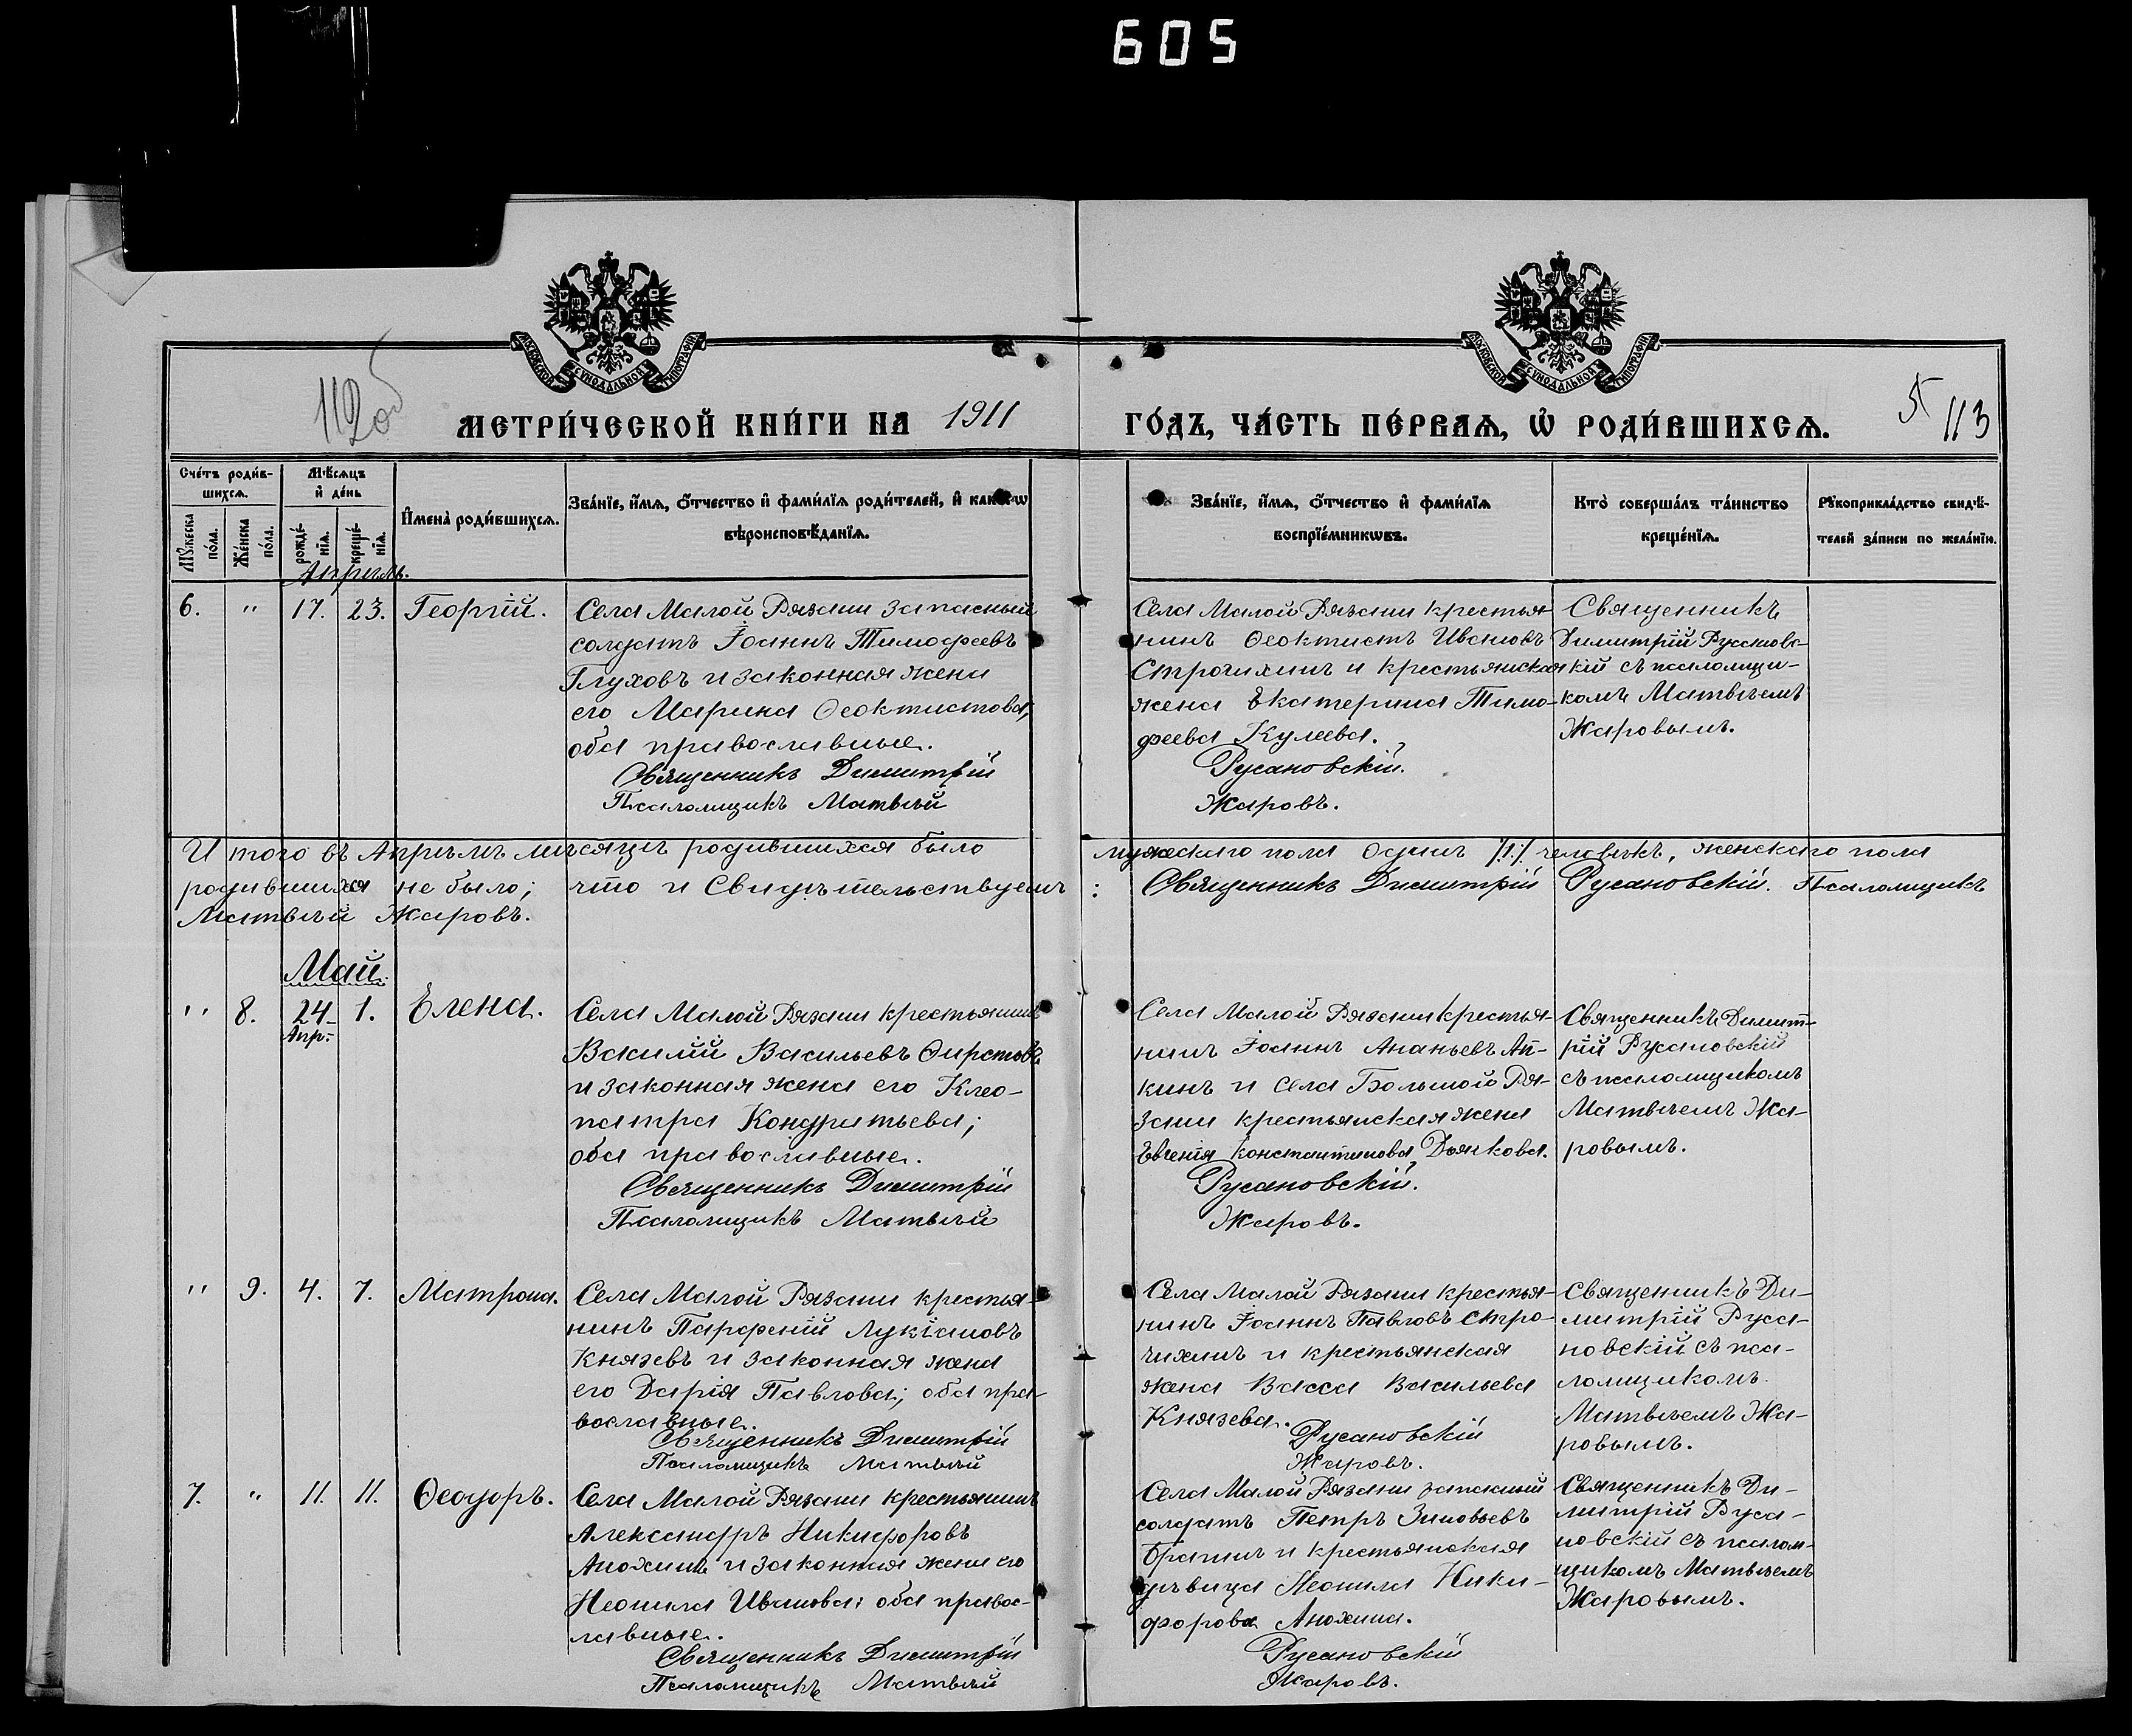 605
112об
МЕТРИ́ЧЕСКОЙ КНИ́ГИ НА 1911
ГО́ДЪ, ЧА́СТЬ ПЕ́РВАѦ, Ѡ҆ РОДИ́ВШИХСѦ.
5
113
МОСКОВСКОЙ СѴНОДАЛЬНОЙ ТИПОГРАФІИ
МОСКОВСКОЙ СѴНОДАЛЬНОЙ ТИПОГРАФІИ
Сче́тъ роди́в-
шихсѧ.
Мѣ́сѧцъ
и҆ де́нь
И҆мена̀ роди́вшихсѧ.
Зва́нїе, и҆́мѧ, ѻ҆́тчество и҆ фами́лїѧ роди́телей, и҆ како́гѡ
вѣроисповѣ́данїѧ.
Зва́нїе, и҆́мѧ, ѻ҆́тчество и҆ фами́лїѧ
воспрїе́мникѡвъ.
Кто̀ соверша́лъ та́инство
креще́нїѧ.
Рꙋкоприкла́дство свидѣ́-
телей за́писи по жела́нїю.
Мꙋ́жеска
по́ла.
Же́нска
по́ла.
рожде́-
нїѧ.
креще́-
нїѧ.
Апрѣль.
6.
"
17.
23.
Георгій.
Села Малой Рязани запасный
солдатъ Іоаннъ Тимофеевъ
Глуховъ и законная жена
его Марина Ѳеоктистова,
оба православные.
Священникъ Димитрій
Псаломщикъ Матвѣй
Села Малой Рязани крестья-
нинъ Ѳеоктистъ Ивановъ
Строчихинъ и крестьянская
жена Екатерина Тимо-
феева Кулеева.
Русановскій.
Жаровъ.
Священникъ
Димитрій Русановс-
кій съ псаломщи-
комъ Матвѣемъ
Жаровымъ.
Итого въ Апрѣлѣ мѣсяцѣ родившихся было мужескаго пола одинъ /1/ человѣкъ, женскаго пола
родившихся не было; что и свидѣтельствуемъ: Священникъ Димитрій Русановскій. Псаломщикъ
Матвѣй Жаровъ.
Май.
"
8.
24
Апр.
1.
Елена.
Села Малой Рязани крестьянинъ
Василій Васильевъ Ѳирстовъ
и законная жена его Клео-
патра Кондратьева;
оба православные.
Священникъ Димитрій
Псаломщикъ Матвѣй
Села Малой Рязани крестья-
нинъ Іоаннъ Ананьевъ Ап-
кинъ и села Большой Ря-
зани крестьянская жена
Евгенія Константинова Дьякова.
Русановскій.
Жаровъ.
Священникъ Димит-
рій Русановскій
съ псаломщикомъ
Матвѣемъ Жа-
ровымъ.
"
9.
4.
7.
Матрона.
Села Малой Рязани крестья-
нинъ Парфеній Лукіановъ
Князевъ и законная жена
его Дарія Павлова; оба пра-
вославные.
Священникъ Димитрій
Псаломщикъ Матвѣй
Села Малой Рязани крестья-
нинъ Іоаннъ Павловъ Стро-
чихинъ и крестьянская
жена Васса Васильева
Князева.
Русановскій
Жаровъ.
Священникъ Ди-
митрій Руса-
новскій съ пса-
ломщикомъ
Матвѣемъ Жа-
ровымъ.
7.
"
11.
11.
Ѳеодоръ.
Села Малой Рязани крестьянинъ
Александръ Никифоровъ
Анохинъ и законная жена его
Неонила Иванова; оба правос-
лавные.
Священникъ Димитрій
Псаломщикъ Матвѣй
Села Малой Рязани запасный
солдатъ Петръ Зиновьевъ
и крестьянская
дѣвица Неонила Ники-
форова Анохина.
Русановскій
Жаровъ.
Священникъ Ди-
митрій Руса-
новскій съ псалом-
щикомъ Матвѣемъ
Жаровымъ.